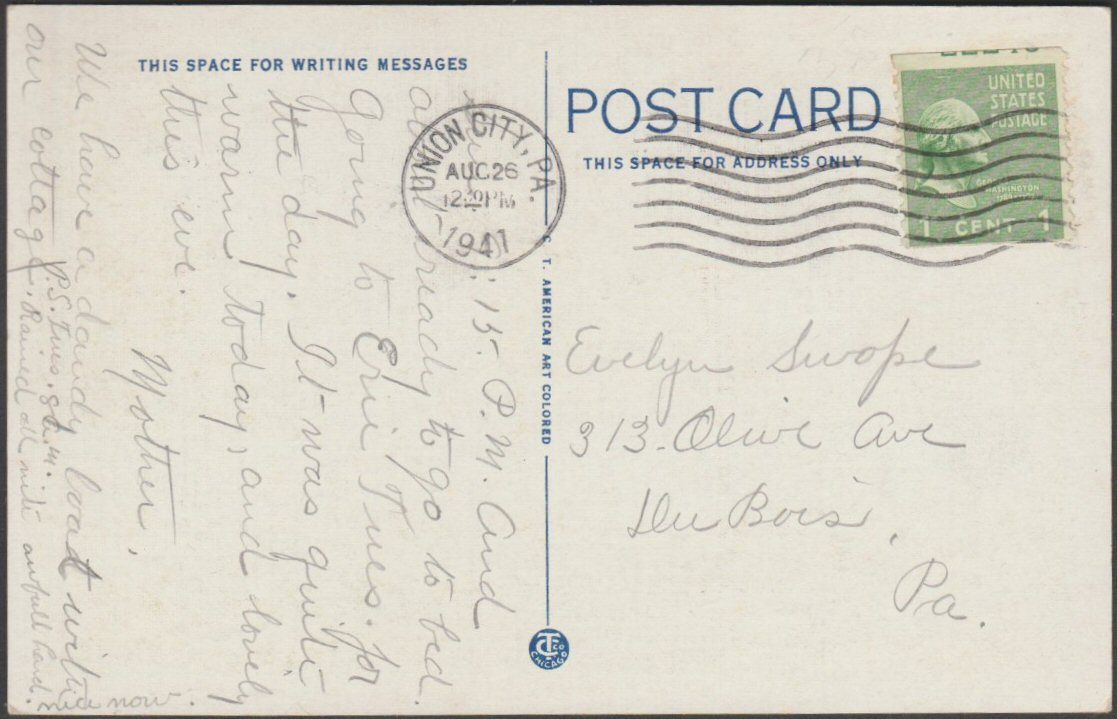 THIS SPACE FOR WRITING MESSAGES
POST CARD
THIS SPACE FOR ADDRESS ONLY
UNITED
STATES
POSTAGE
GEORGE
WASHINGTON
1 CENT 1
UNION CITY, PA.
AUG 26
12 PM
1941
C. T. AMERICAN ART COLORED
CT CO
CHICAGO
:15 P.M. and
all ready to go to bed.
Going to Erie Tues. for
the day. It was quite
warm today, and lovely
this eve.
Mother.
We have a dandy boat with
our cottage.
P.S. Tues. 8 A.M.
Rained all nite awfull hard.
nice now.
Evelyn Swope
313 Olive Ave
Du Bois,
Pa.